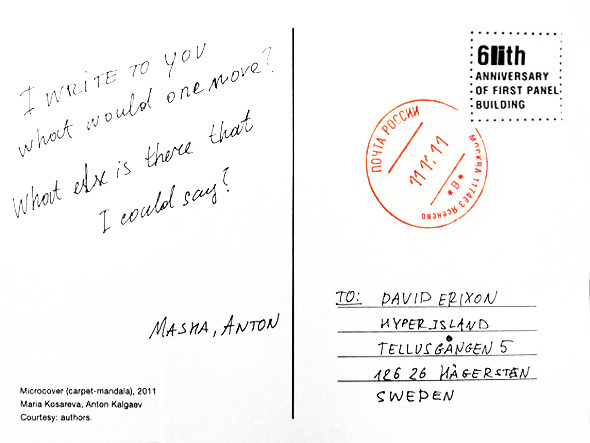 I WRITE TO YOU
what would one more?
What else is there that
I could say?
MASHA, ANTON
Microcover (carpet-mandala), 2011
Maria Kosareva, Anton Kalgaev
Courtesy: authors.
ANNIVERSARY
OF FIRST PANEL
BUILDING
ПОЧТА РОССИИ
*В*
МОСКВА 117463 Ясенево
TO: DAVID ERIXON
HYPERISLAND
TELLUSGÅNGEN 5
126 26 HÄGERSTEN
SWEDEN